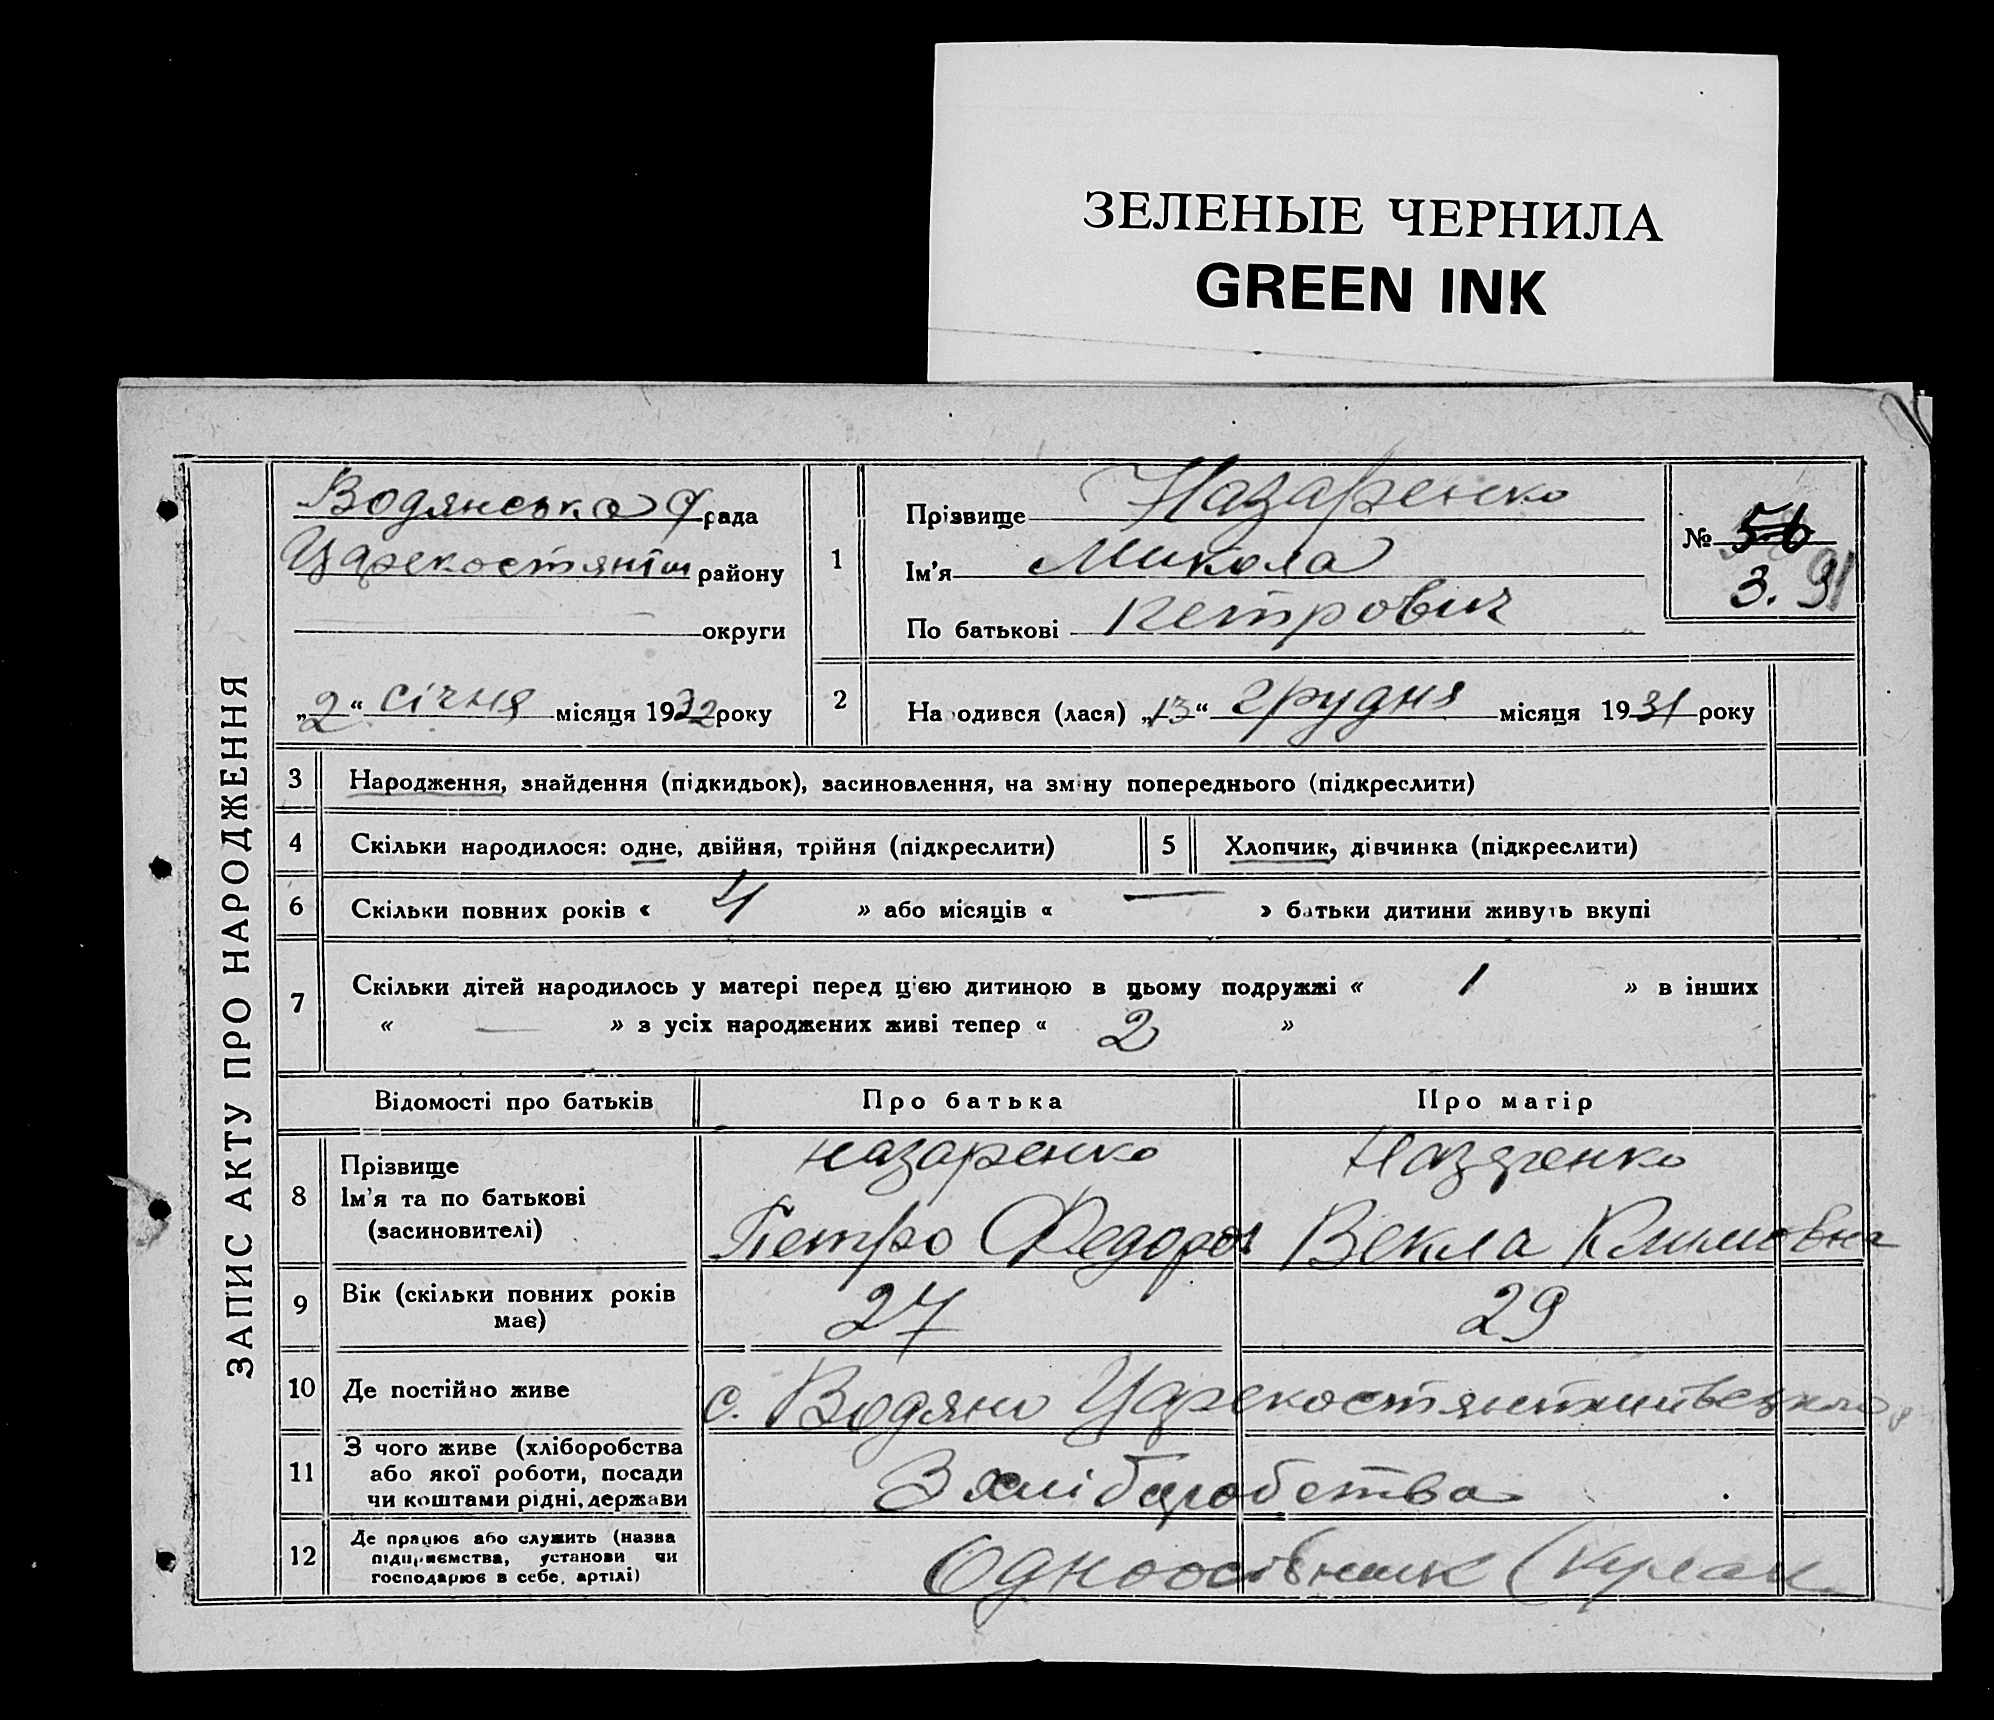 ЗЕЛЕНЫЕ ЧЕРНИЛА
GREEN INK
ЗАПИС АКТУ ПРО НАРОДЖЕННЯ
Водянська рада
району
округи
„2“ січня місяця 1932 року
1
Прізвище Назаренко
Ім'я Микола
По батькові Петрович
№ 56
3. 91
2
Народився (лася) „13“ грудня місяця 1931 року
3 Народження, знайдення (підкидьок), засиновлення, на зміну попереднього (підкреслити)
4 Скільки народилося: одне, двійня, трійня (підкреслити) 5 Хлопчик, дівчинка (підкреслити)
6 Скільки повних років « 4 » або місяців « — » батьки дитини живуть вкупі
7 Скільки дітей народилось у матері перед цією дитиною в цьому подружжі « 1 » в інших
« — » з усіх народжених живі тепер « 2 »
Відомості про батьків Про батька Про матір
8 Прізвище
Ім'я та по батькові
(засиновителі)
Назаренко
Петро Федоров
Назаренко
Векла Климовна
9 Вік (скільки повних років
має)
27 29
10 Де постійно живе с. Водяно
11 З чого живе (хліборобства
або якої роботи, посади
чи коштами рідні, держави
З хліборобства
12 Де працює або служить (назва
підприємства, установи чи
господарює в себе, артілі)
Одноосібник (кулак